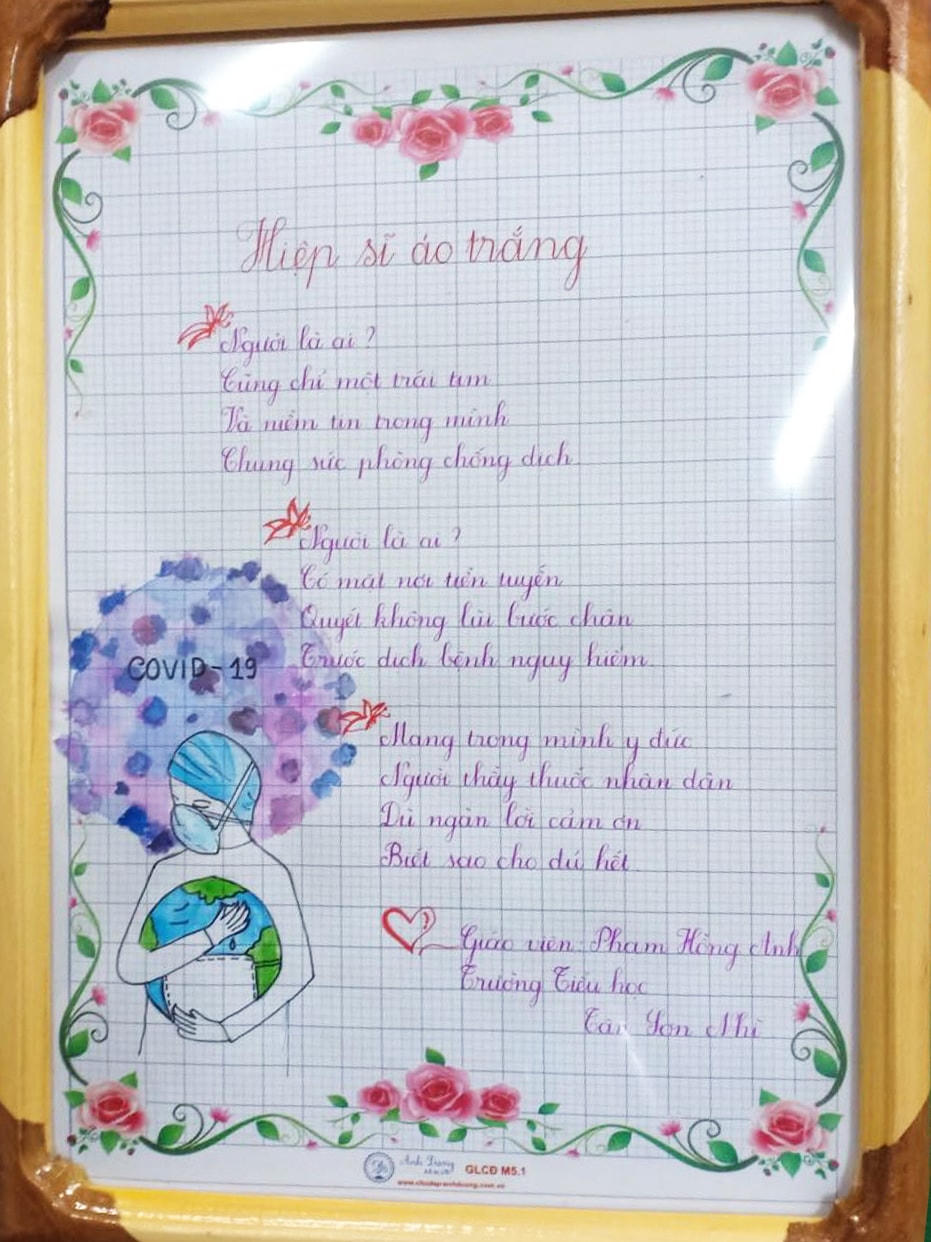 Hiệp sĩ áo trắng
Người là ai?
Cũng chỉ một trái tim
Và niềm tin trong mình
Chung sức phòng chống dịch
Người là ai?
Có mặt nơi tiền tuyến
Quyết không lùi bước chân
Trước dịch bệnh nguy hiểm
COVID-19
Mang trong mình y đức
Người thầy thuốc nhân dân
Dù ngàn lời cảm ơn
Biết sao cho đủ hết
Giáo viên: Phạm Hồng Anh
Trường Tiểu học
Tân Sơn Nhì
Ánh Dương
GLCĐ M5.1